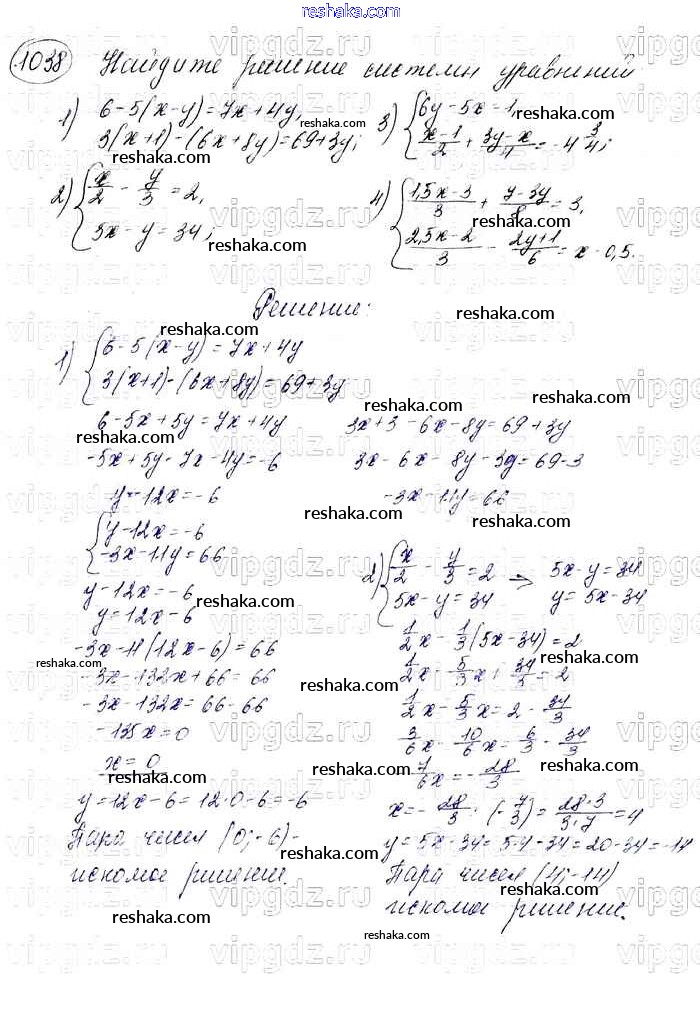 1038 Найдите решение системы уравнений
1) 6-5(x-y)=7x+4y,
3(x+1)-(6x+8y)=69+3y;
2) {x/2 - y/3 = 2,
5x-y=34;
3) {6y-5x=1,
(x-1)/2 + (3y-x)/4 = -4 3/4;
4) {(1,5x-3)/3 + (7-3y)/8 = 3,
(2,5x-2)/3 - (2y+1)/6 = x-0,5.
Решение:
1) {6-5(x-y)=7x+4y
3(x+1)-(6x+8y)=69+3y
6-5x+5y=7x+4y
-5x+5y-7x-4y=-6
y-12x=-6
3x+3-6x-8y=69+3y
3x-6x-8y-3y=69-3
-3x-11y=66
{y-12x=-6
-3x-11y=66
y-12x=-6
y=12x-6
-3x-11(12x-6)=66
-3x-132x+66=66
-3x-132x=66-66
-135x=0
x=0
y=12x-6=12·0-6=-6
Пара чисел (0;-6)-
искомое решение.
2) {x/2 - y/3 = 2 ⇒ 5x-y=34
5x-y=34 y=5x-34
1/2x - 1/3(5x-34)=2
1/2x - 5/3x + 34/3 = 2
1/2x - 5/3x = 2 - 34/3
3/6x - 10/6x = 6/3 - 34/3
7/6x = -28/3
x = -28/3 · (-7/3) = 28·3/3·7 = 4
y=5x-34=5·4-34=20-34=-14
Пара чисел (4;-14)
искомое решение.
reshaka.com
vipgdz.ru